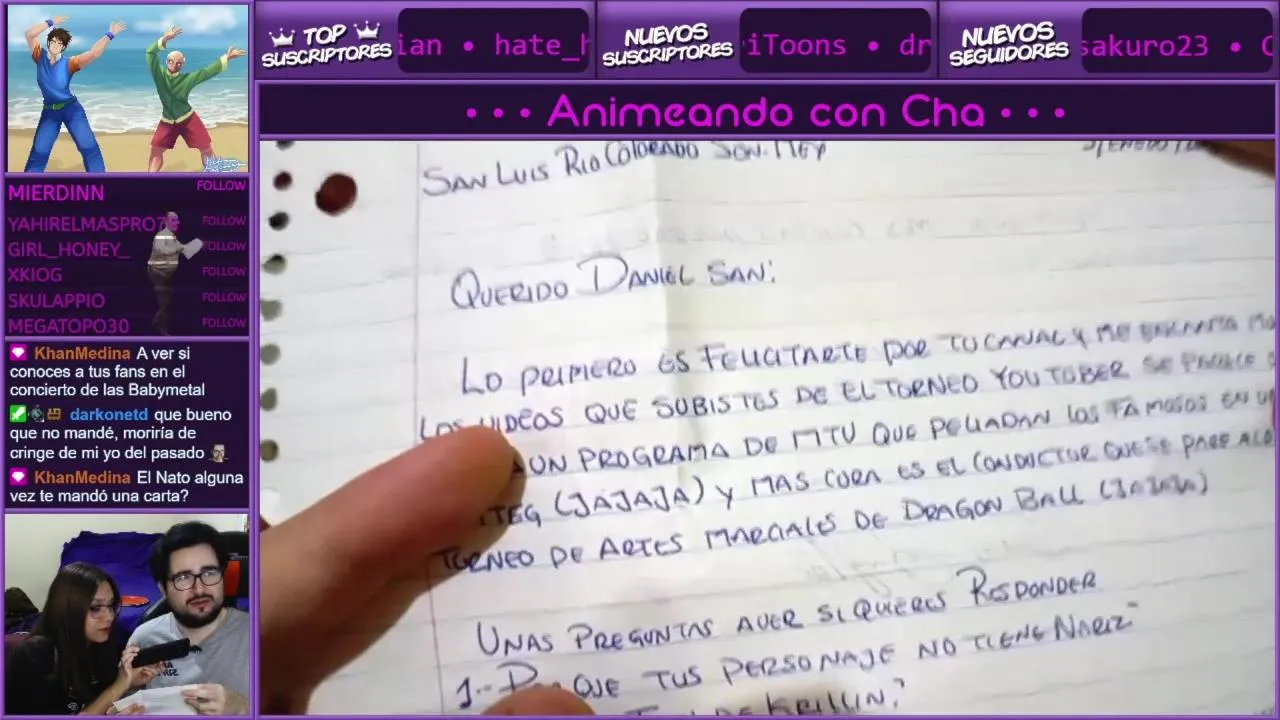 TOP SUSCRIPTORES
ian • hate_h
NUEVOS SUSCRIPTORES
iToons • dr
NUEVOS SEGUIDORES
sakuro23 • C
• • • Animeando con Cha • • •
MIERDINN FOLLOW
YAHIRELMASPRO79 FOLLOW
GIRL_HONEY_ FOLLOW
XKIOG FOLLOW
SKULAPPIO FOLLOW
MEGATOPO30 FOLLOW
KhanMedina A ver si
conoces a tus fans en el
concierto de las Babymetal
darkonetd que bueno
que no mandé, moriría de
cringe de mi yo del pasado
KhanMedina El Nato alguna
vez te mandó una carta?
SAN LUIS RIO COLORADO SON. MEX
QUERIDO DANIEL SAN:
LO PRIMERO ES FELICITARTE POR TU CANAL Y ME ENCANTA
LOS VIDEOS QUE SUBISTES DE EL TORNEO YOUTOBER SE PARECE
UN PROGRAMA DE MTV QUE PELIADAN LOS FAMOSOS EN
(JAJAJA) Y MAS CURA ES EL CONDUCTOR QUE SE PARE
TORNEO DE ARTES MARCIALES DE DRAGON BALL (JAJAJA)
UNAS PREGUNTAS AVER SI QUIERES RESPONDER
1.- QUE TUS PERSONAJE NO TIENE NARIZ
DE KRILLIN?